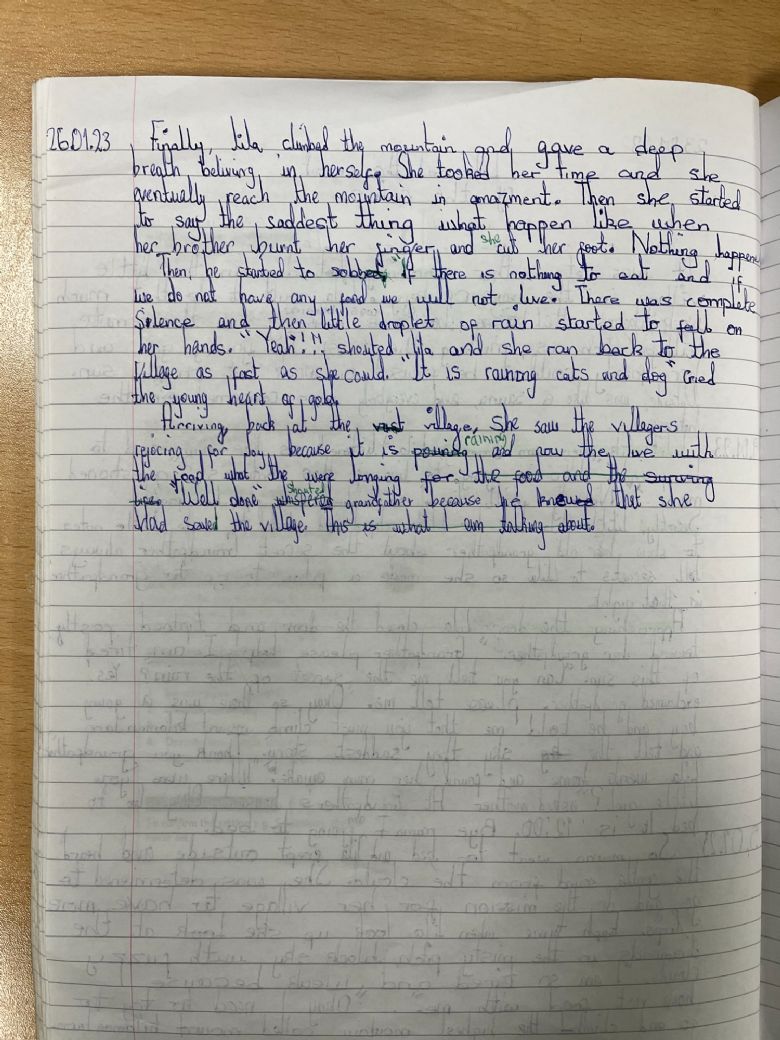 26.01.23 Finally, Lila climbed the mountain and gave a deep
breath beliving in herself. She tooked her time and she
eventually reach the mountain in amazment. Then she started
to say the saddest thing what happen like when
her brother burnt her finger and she cut her foot. Nothing happene
Then, he started to sobbed, "if there is nothing to eat and if
we do not have any food we will not live. There was complete
Silence and then little droplet of rain started to fell on
her hands. "Yeah!!! shouted lila and she ran back to the
village as fast as she could. "It is raining cats and dog" Cried
the young heart of gold.
Arriving back at the vast village, she saw the villagers
rejocing for Joy because it is pouring raining and now the live with
the food what the were longing for the food and the surviving
"Well done" whispered shouted grandfather because he knowed that she
Had saved the village. This is what I am talking about.